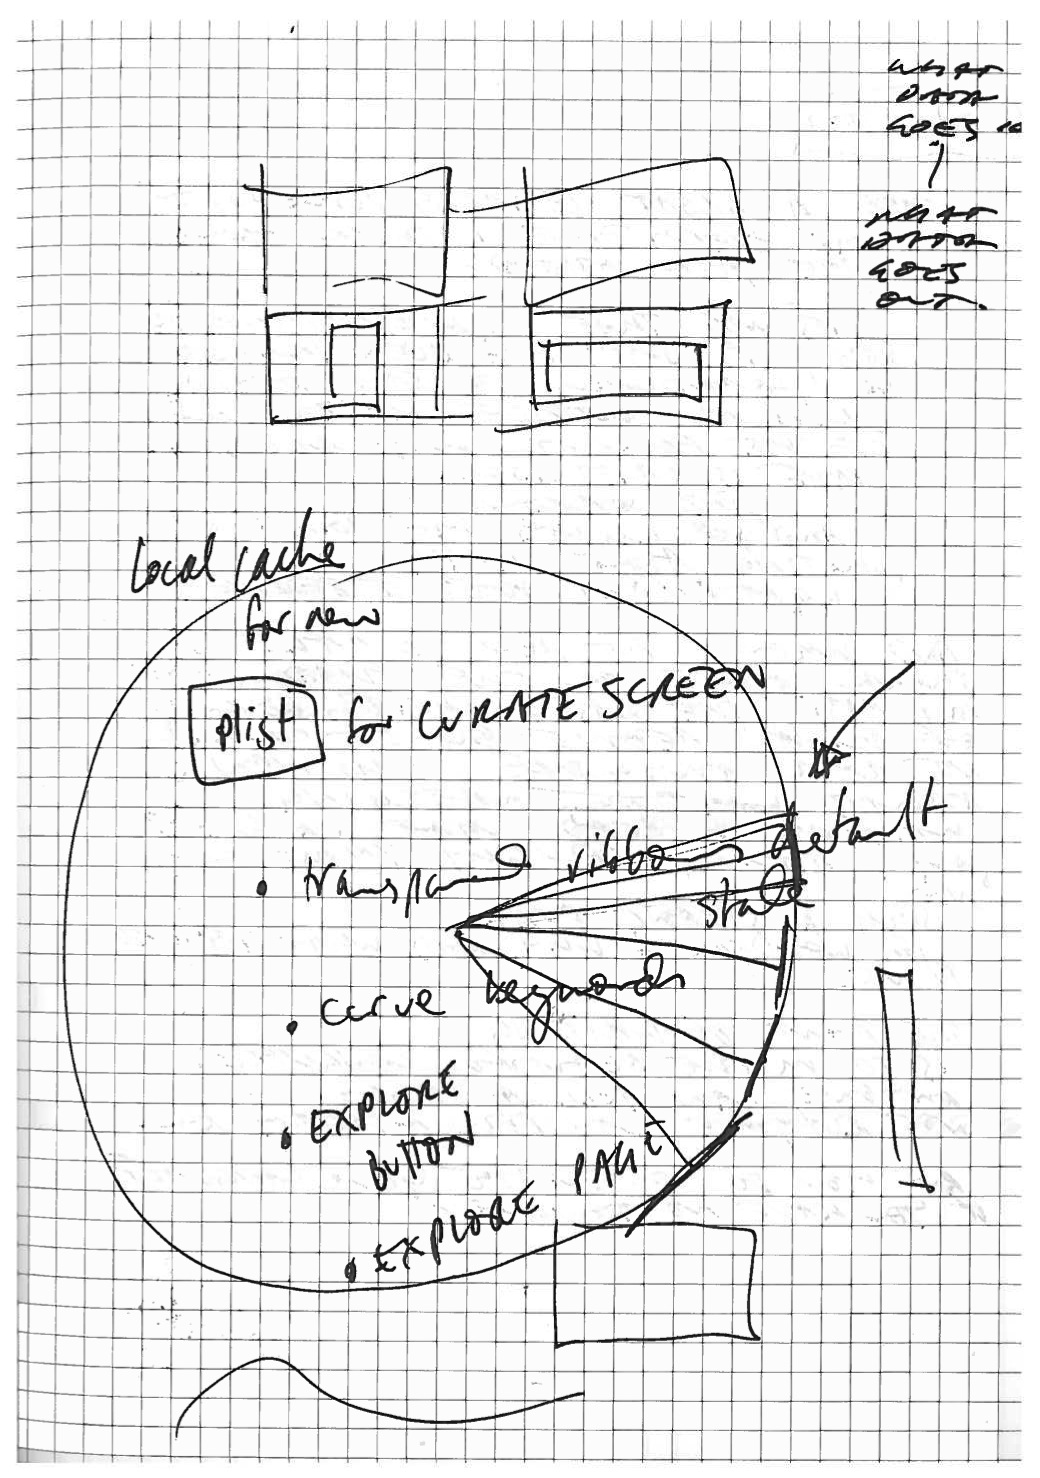 WHAT
DATA
GOES IN
WHAT
DATA
GOES
OUT.
local cache
for new
plist for CURATE SCREEN
• transparent ribbons default
state
• curve keywords
• EXPLORE
BUTTON
• EXPLORE PAGE